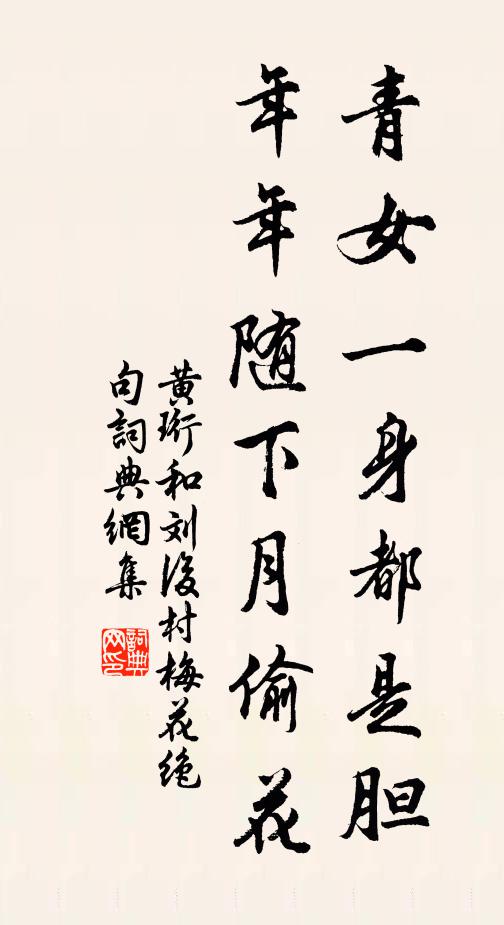 青女一身都是胆
年年随下月偷花
黄珩和刘後村梅花绝
句詞典網集
詞典
网印